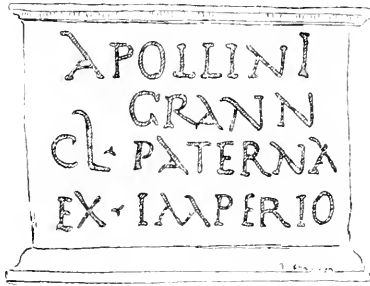 APOLLINI
GRANN
CL · PATERNA
EX · IMPERIO